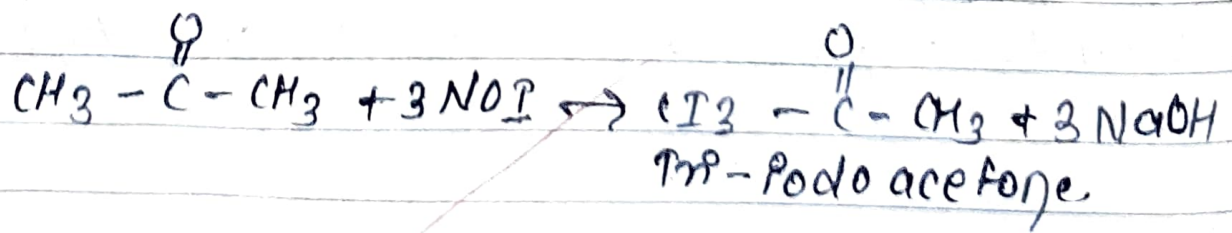 O O
CH3 - C - CH3 + 3 NOI → CI3 - C - CH3 + 3 NaOH
Tri-iodo acetone